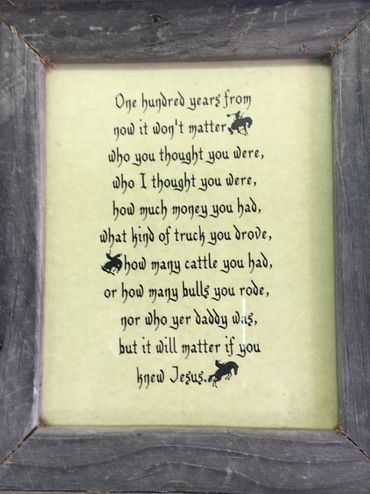 One hundred years from
now it won't matter
who you thought you were,
who I thought you were,
how much money you had,
what kind of truck you drove,
how many cattle you had,
or how many bulls you rode,
nor who yer daddy was,
but it will matter if you
knew Jesus.